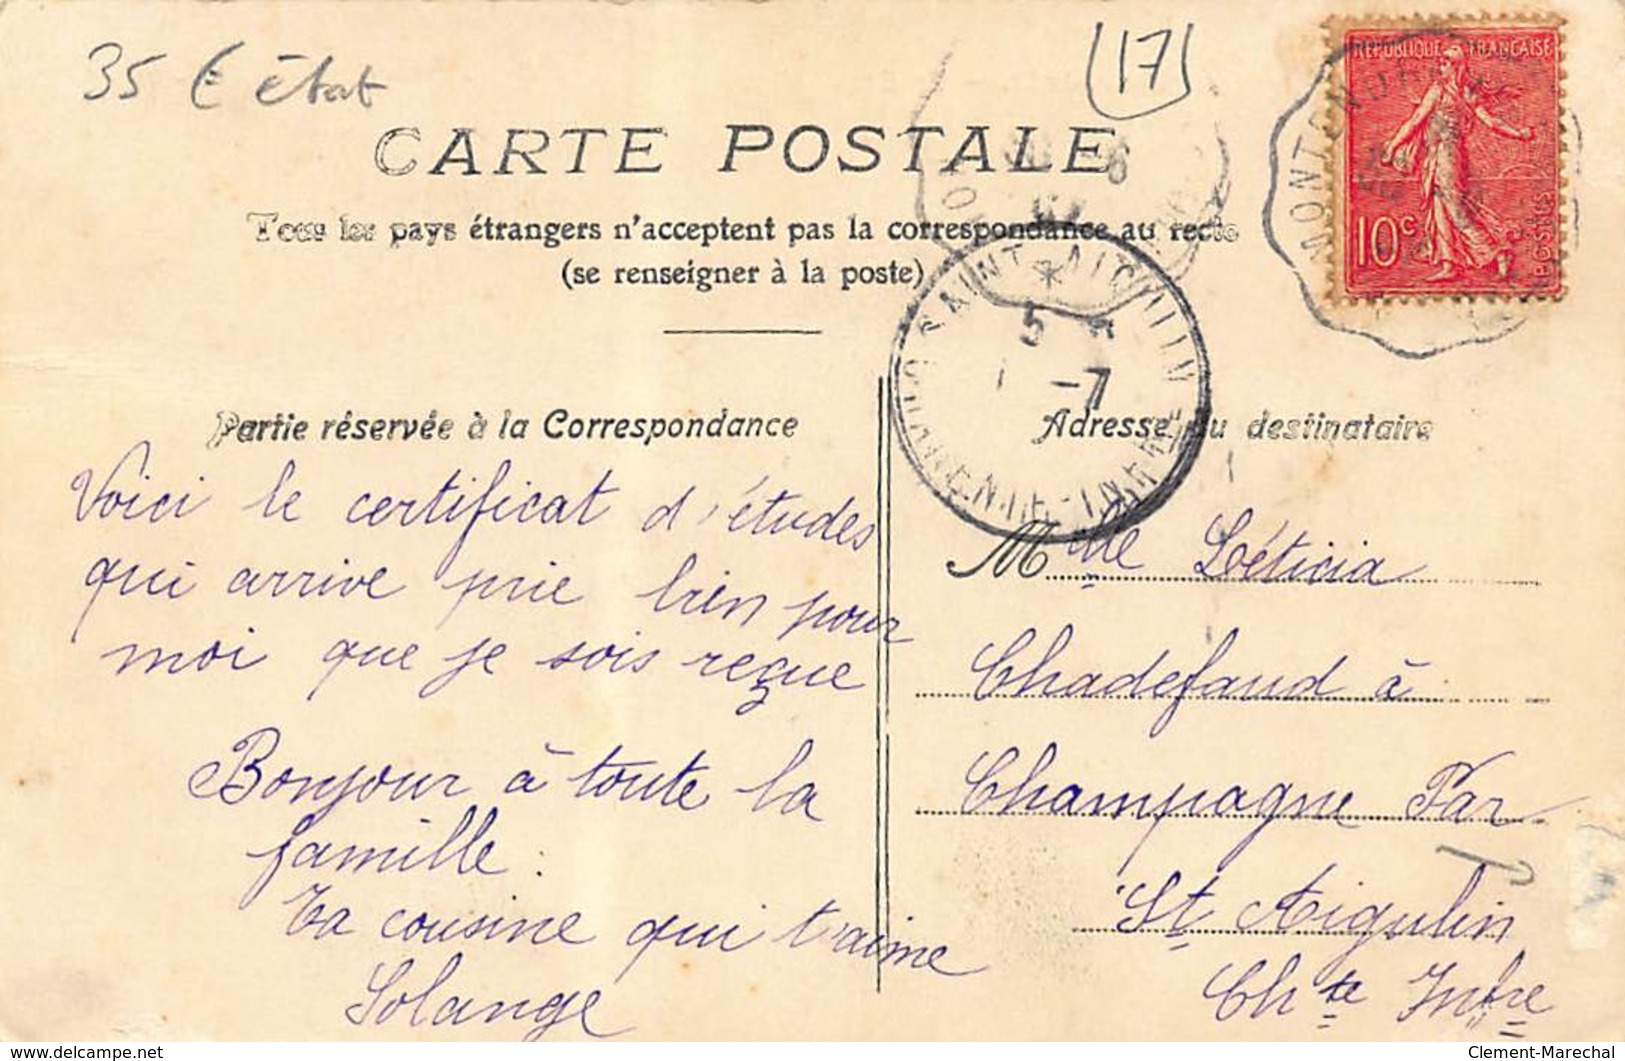 35 € état
(17)
CARTE POSTALE
Tous les pays étrangers n'acceptent pas la correspondance au recto
(se renseigner à la poste)
RÉPUBLIQUE FRANÇAISE
10c
POSTES
MONTENDRE
SAINT-AIGULIN
5
-7
CHARENTE-INFRE
Partie réservée à la Correspondance
Voici le certificat d'études
qui arrive prie bien pour
moi que je sois reçue
Bonjour à toute la
famille.
Ta cousine qui t'aime
Solange
Adresse du destinataire
Mlle Léticia
Chadefaud à
Champagne Par
St Aigulin
Chte Infre
delcampe.net
Clement-Marechal